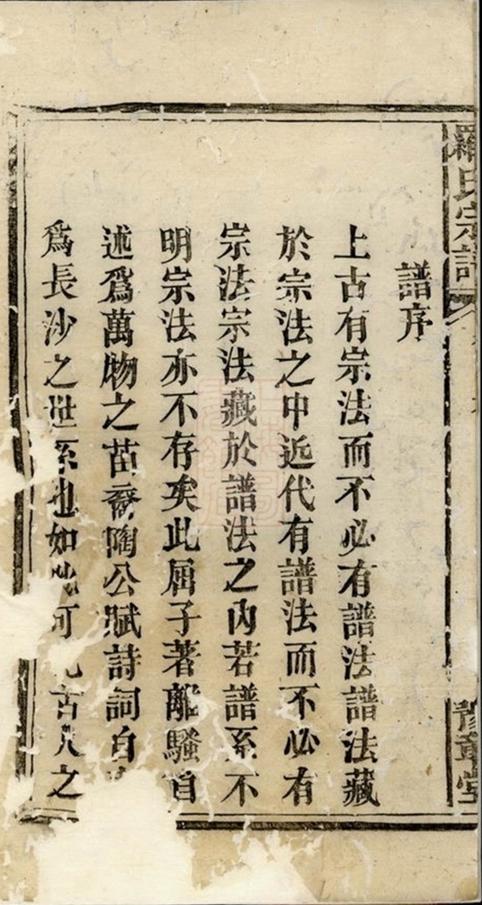 羅氏宗譜
豫章堂
譜序
上古有宗法而不必有譜法譜法藏
於宗法之中近代有譜法而不必有
宗法宗法藏於譜法之內若譜系不
明宗法亦不存矣此屈子著離騷自
述爲萬物之苗裔陶公賦詩詞自
爲長沙之世系也如 可 古人之